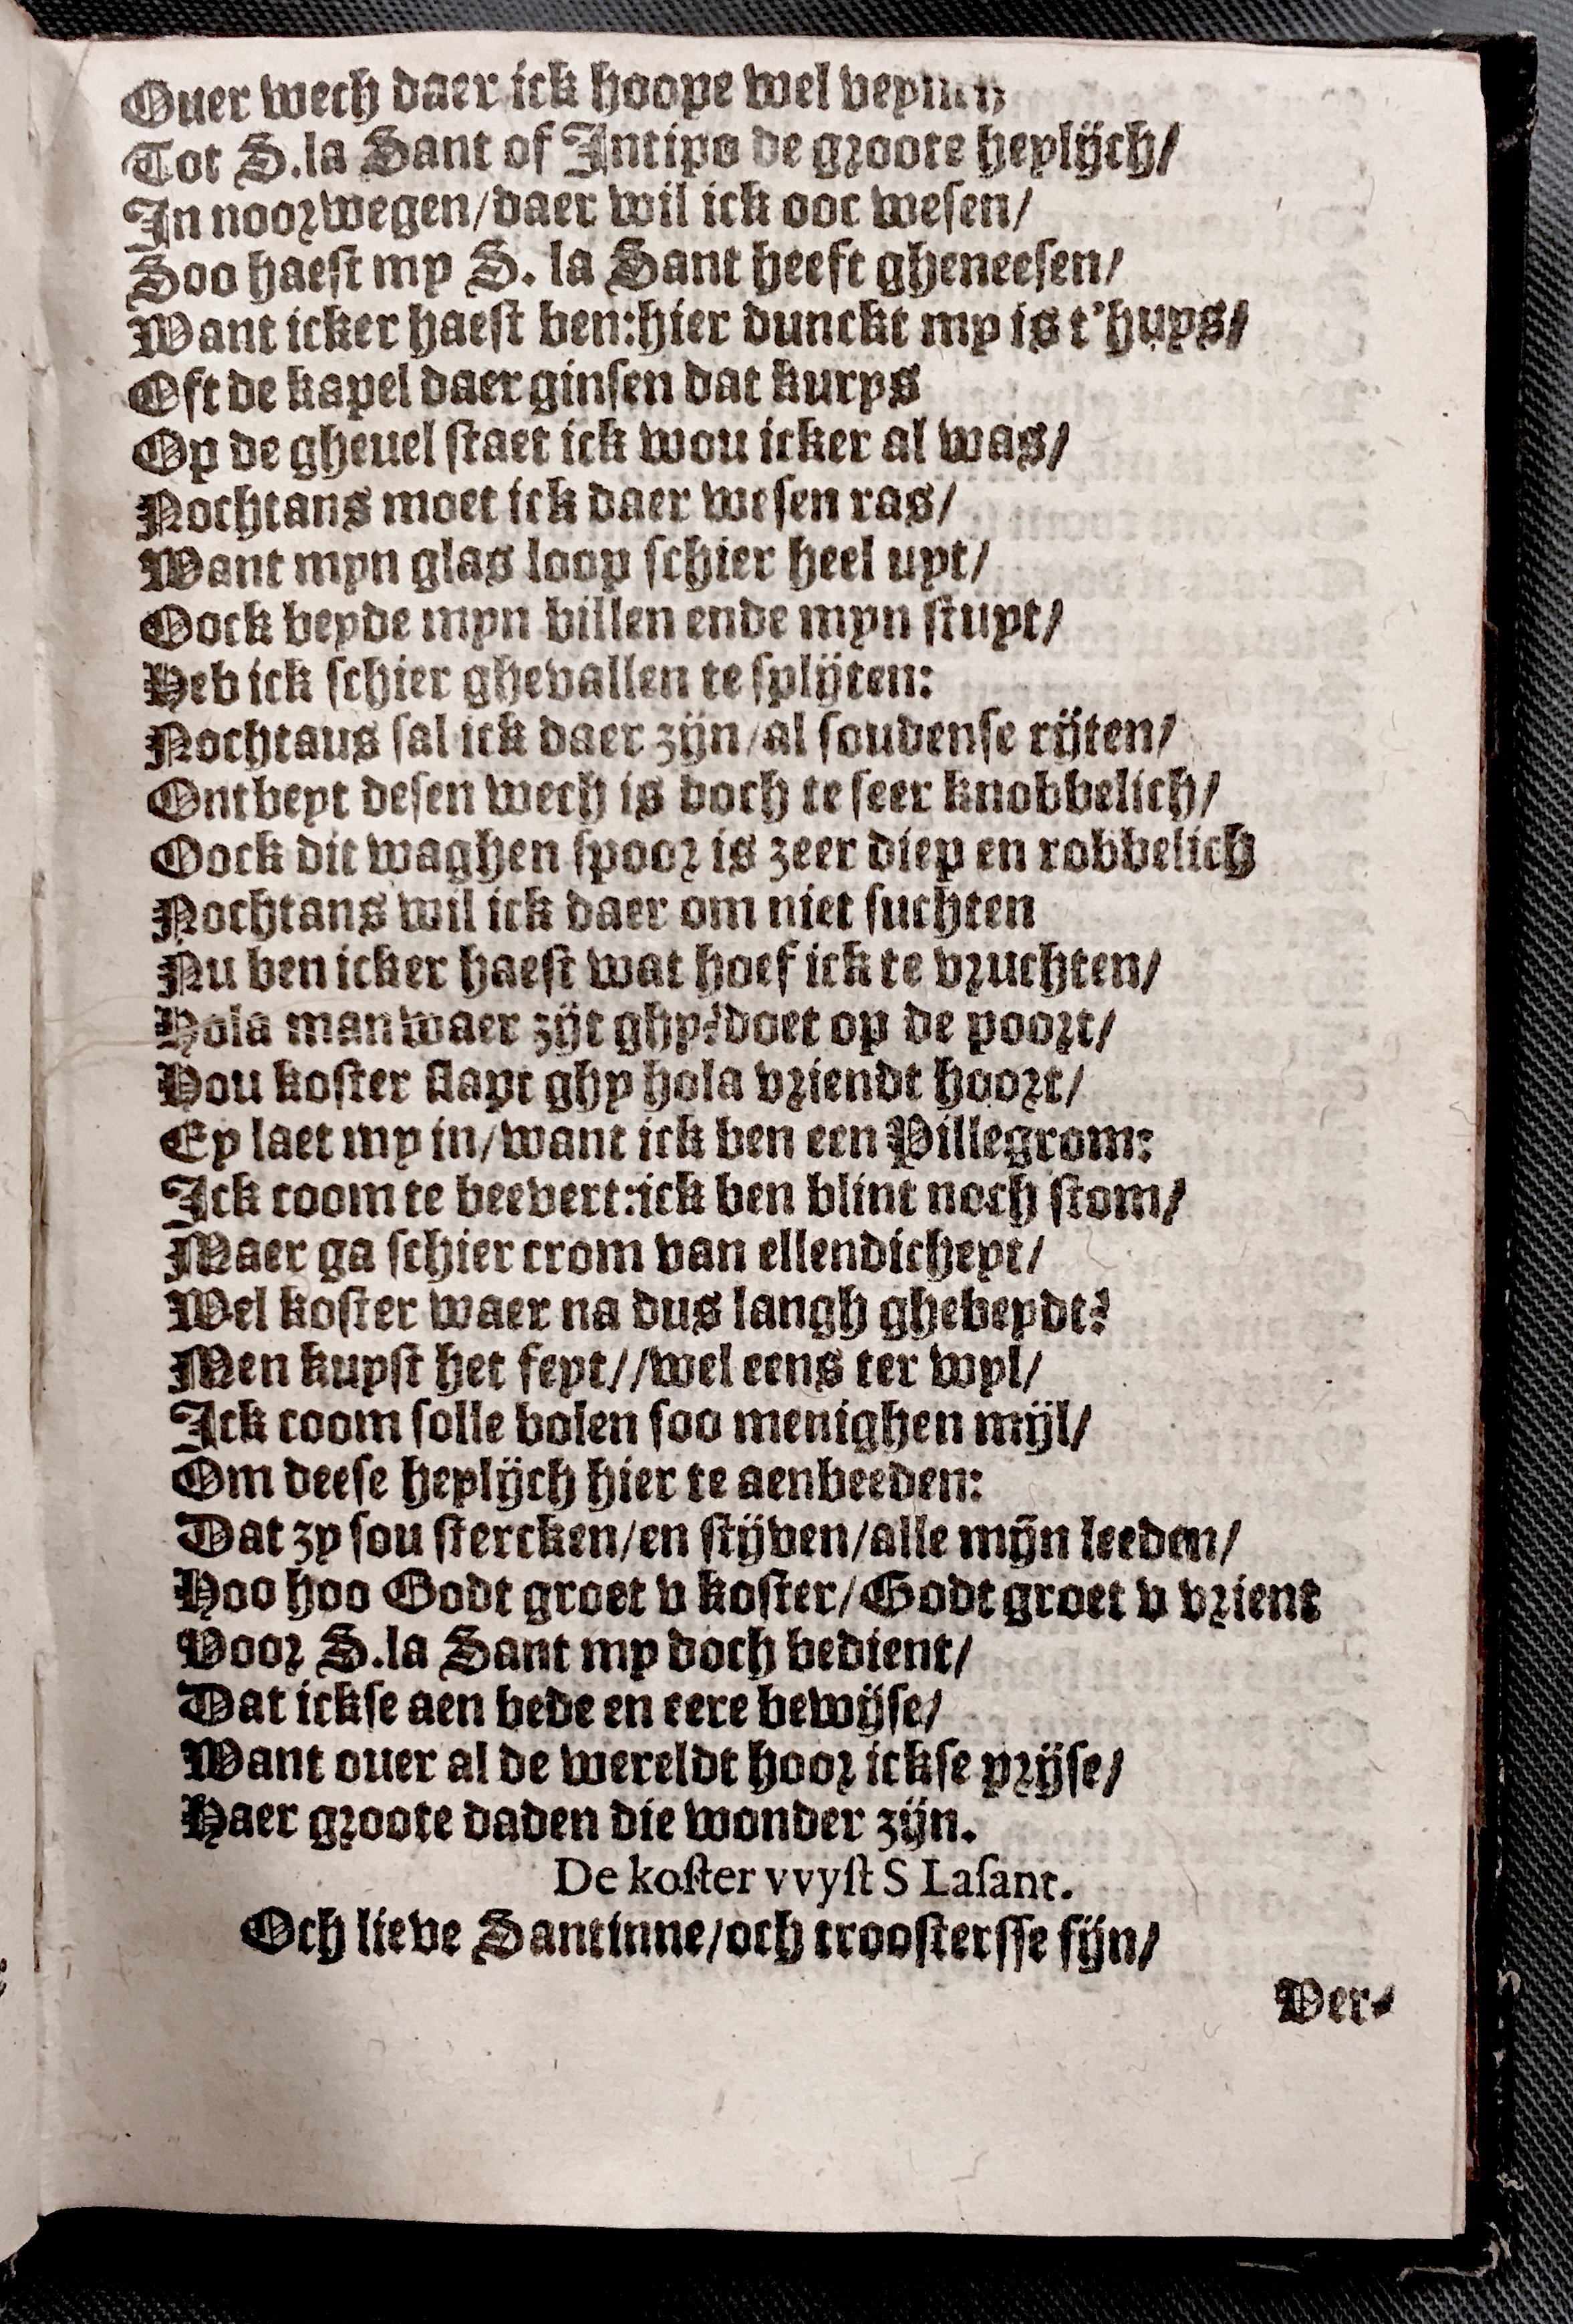 Ouer wech daer ick hoope wel
Tot S.la Sant of Intips de groote heylijch/
In noorwegen/daer wil ick ooc wesen/
Soo haest my S. la Sant heeft gheneesen/
Want icker haest ben:hier dunckt my is t'huys/
Oft de kapel daer ginsen dat kurys
Op de gheuel staet ick wou icker al was/
Nochtans moet ick daer wesen ras/
Want myn glas loop schier heel uyt/
Oock beyde myn billen ende myn stuyt/
Heb ick schier ghevallen te splijten:
Nochtaus sal ick daer zijn/al soudense rijten/
Ontbeyt desen wech is doch te seer knobbelich/
Oock dit waghen spoor is zeer diep en robbelich
Nochtans wil ick daer om niet suchten
Nu ben icker haest wat hoef ick te vruchten/
Hola man waer zijt ghy?doet op de poort/
Hou koster slapt ghy hola vriendt hoort/
Ey laet my in/want ick ben een Pillegrom:
Ick coom te beevert:ick ben blint noch stom/
Maer ga schier crom van ellendicheyt/
Wel koster waer na dus langh ghebeydt?
Men kuyst het feyt//wel eens ter wyl/
Ick coom solle bolen soo menighen mijl/
Om deese heylijch hier te aenbeeden:
Dat zy sou stercken/en stijven/alle mijn leeden/
Hoo hoo Godt groet v koster/Godt groet v vrient
Voor S.la Sant my doch bedient/
Dat ickse aen bede en eere bewijse/
Want ouer al de wereldt hoor ickse prijse/
Haer groote daden die wonder zijn.
De koster vvyst S Lasant.
Och lieve Santinne/och troostersse fijn/
Ver-